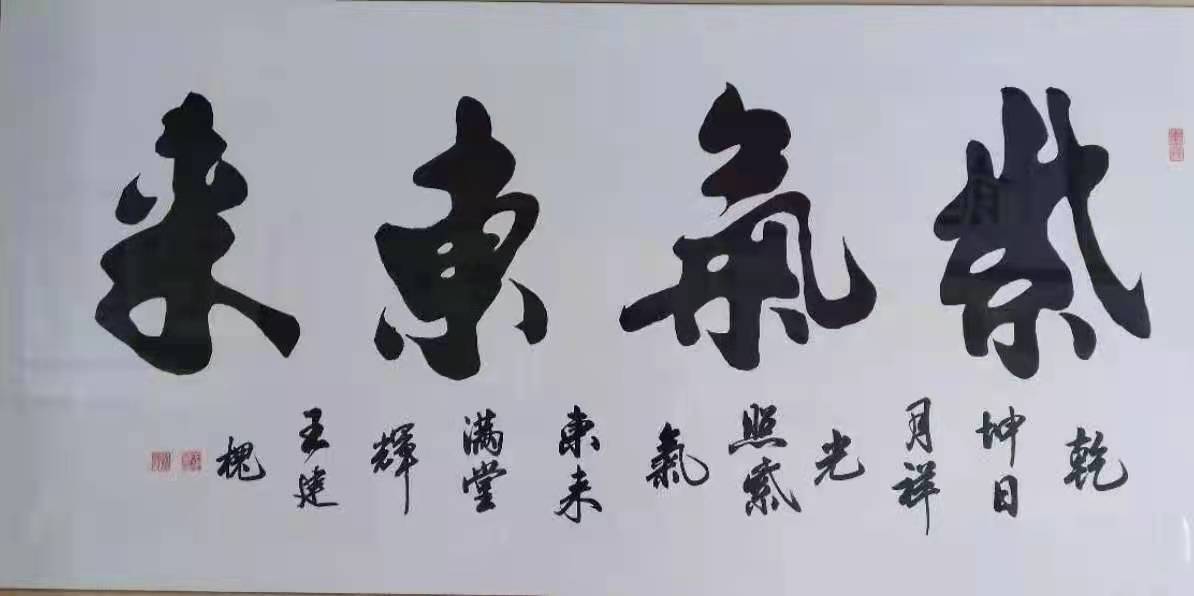 紫氣東来
乾
坤日
月祥
光
照紫
氣
東来
满堂
輝
王建
槐